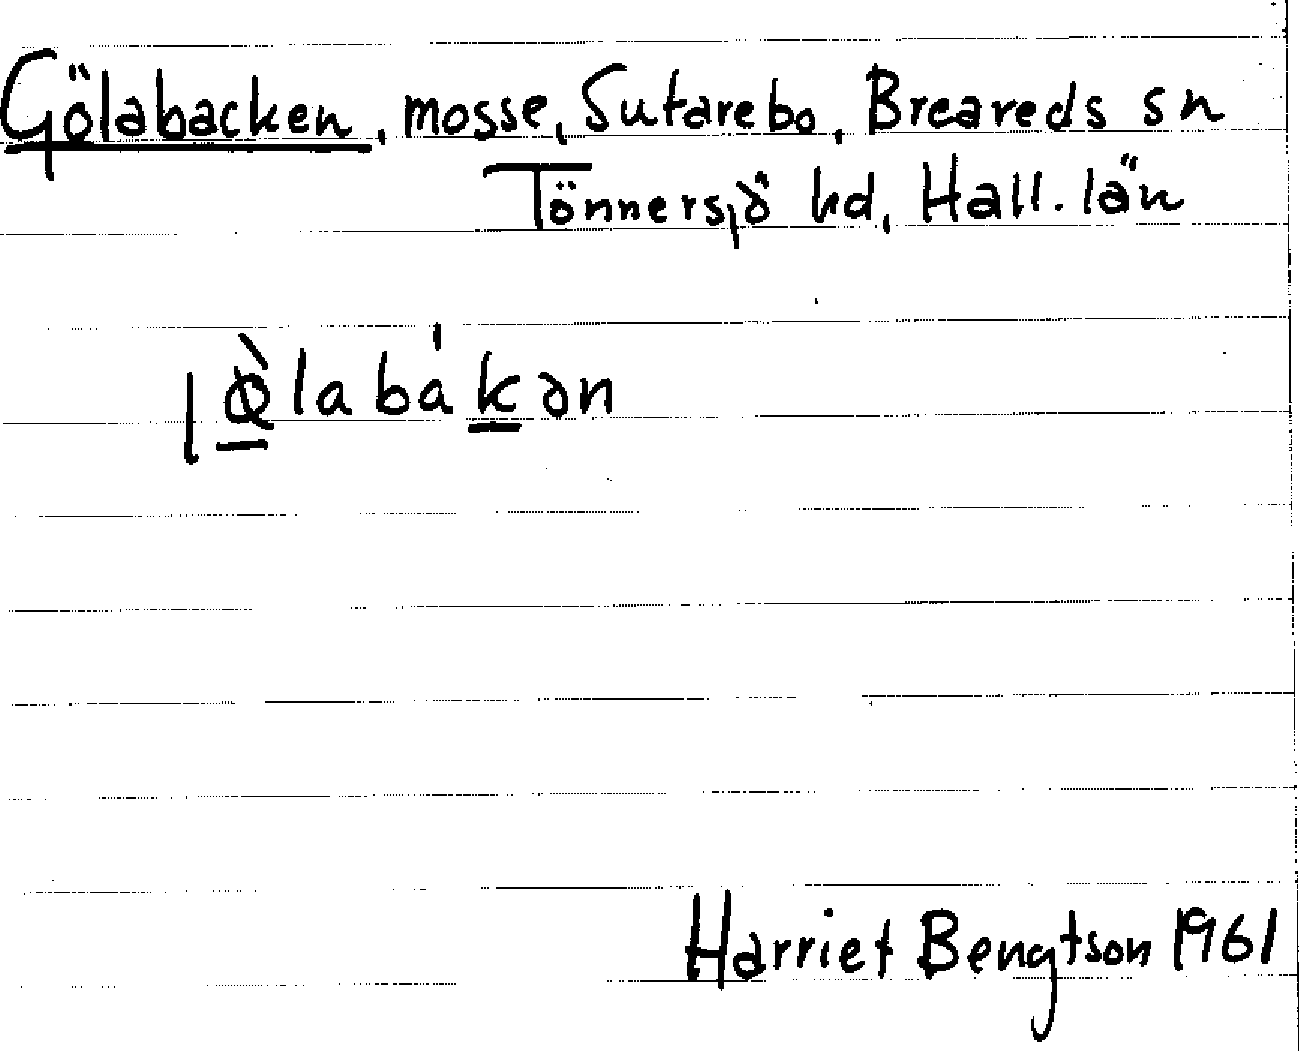 Gölabacken, mosse, Sutarebo, Breareds sn
Tönnersjö hd, Hall. län
jø̀labákən
Harriet Bengtson 1961